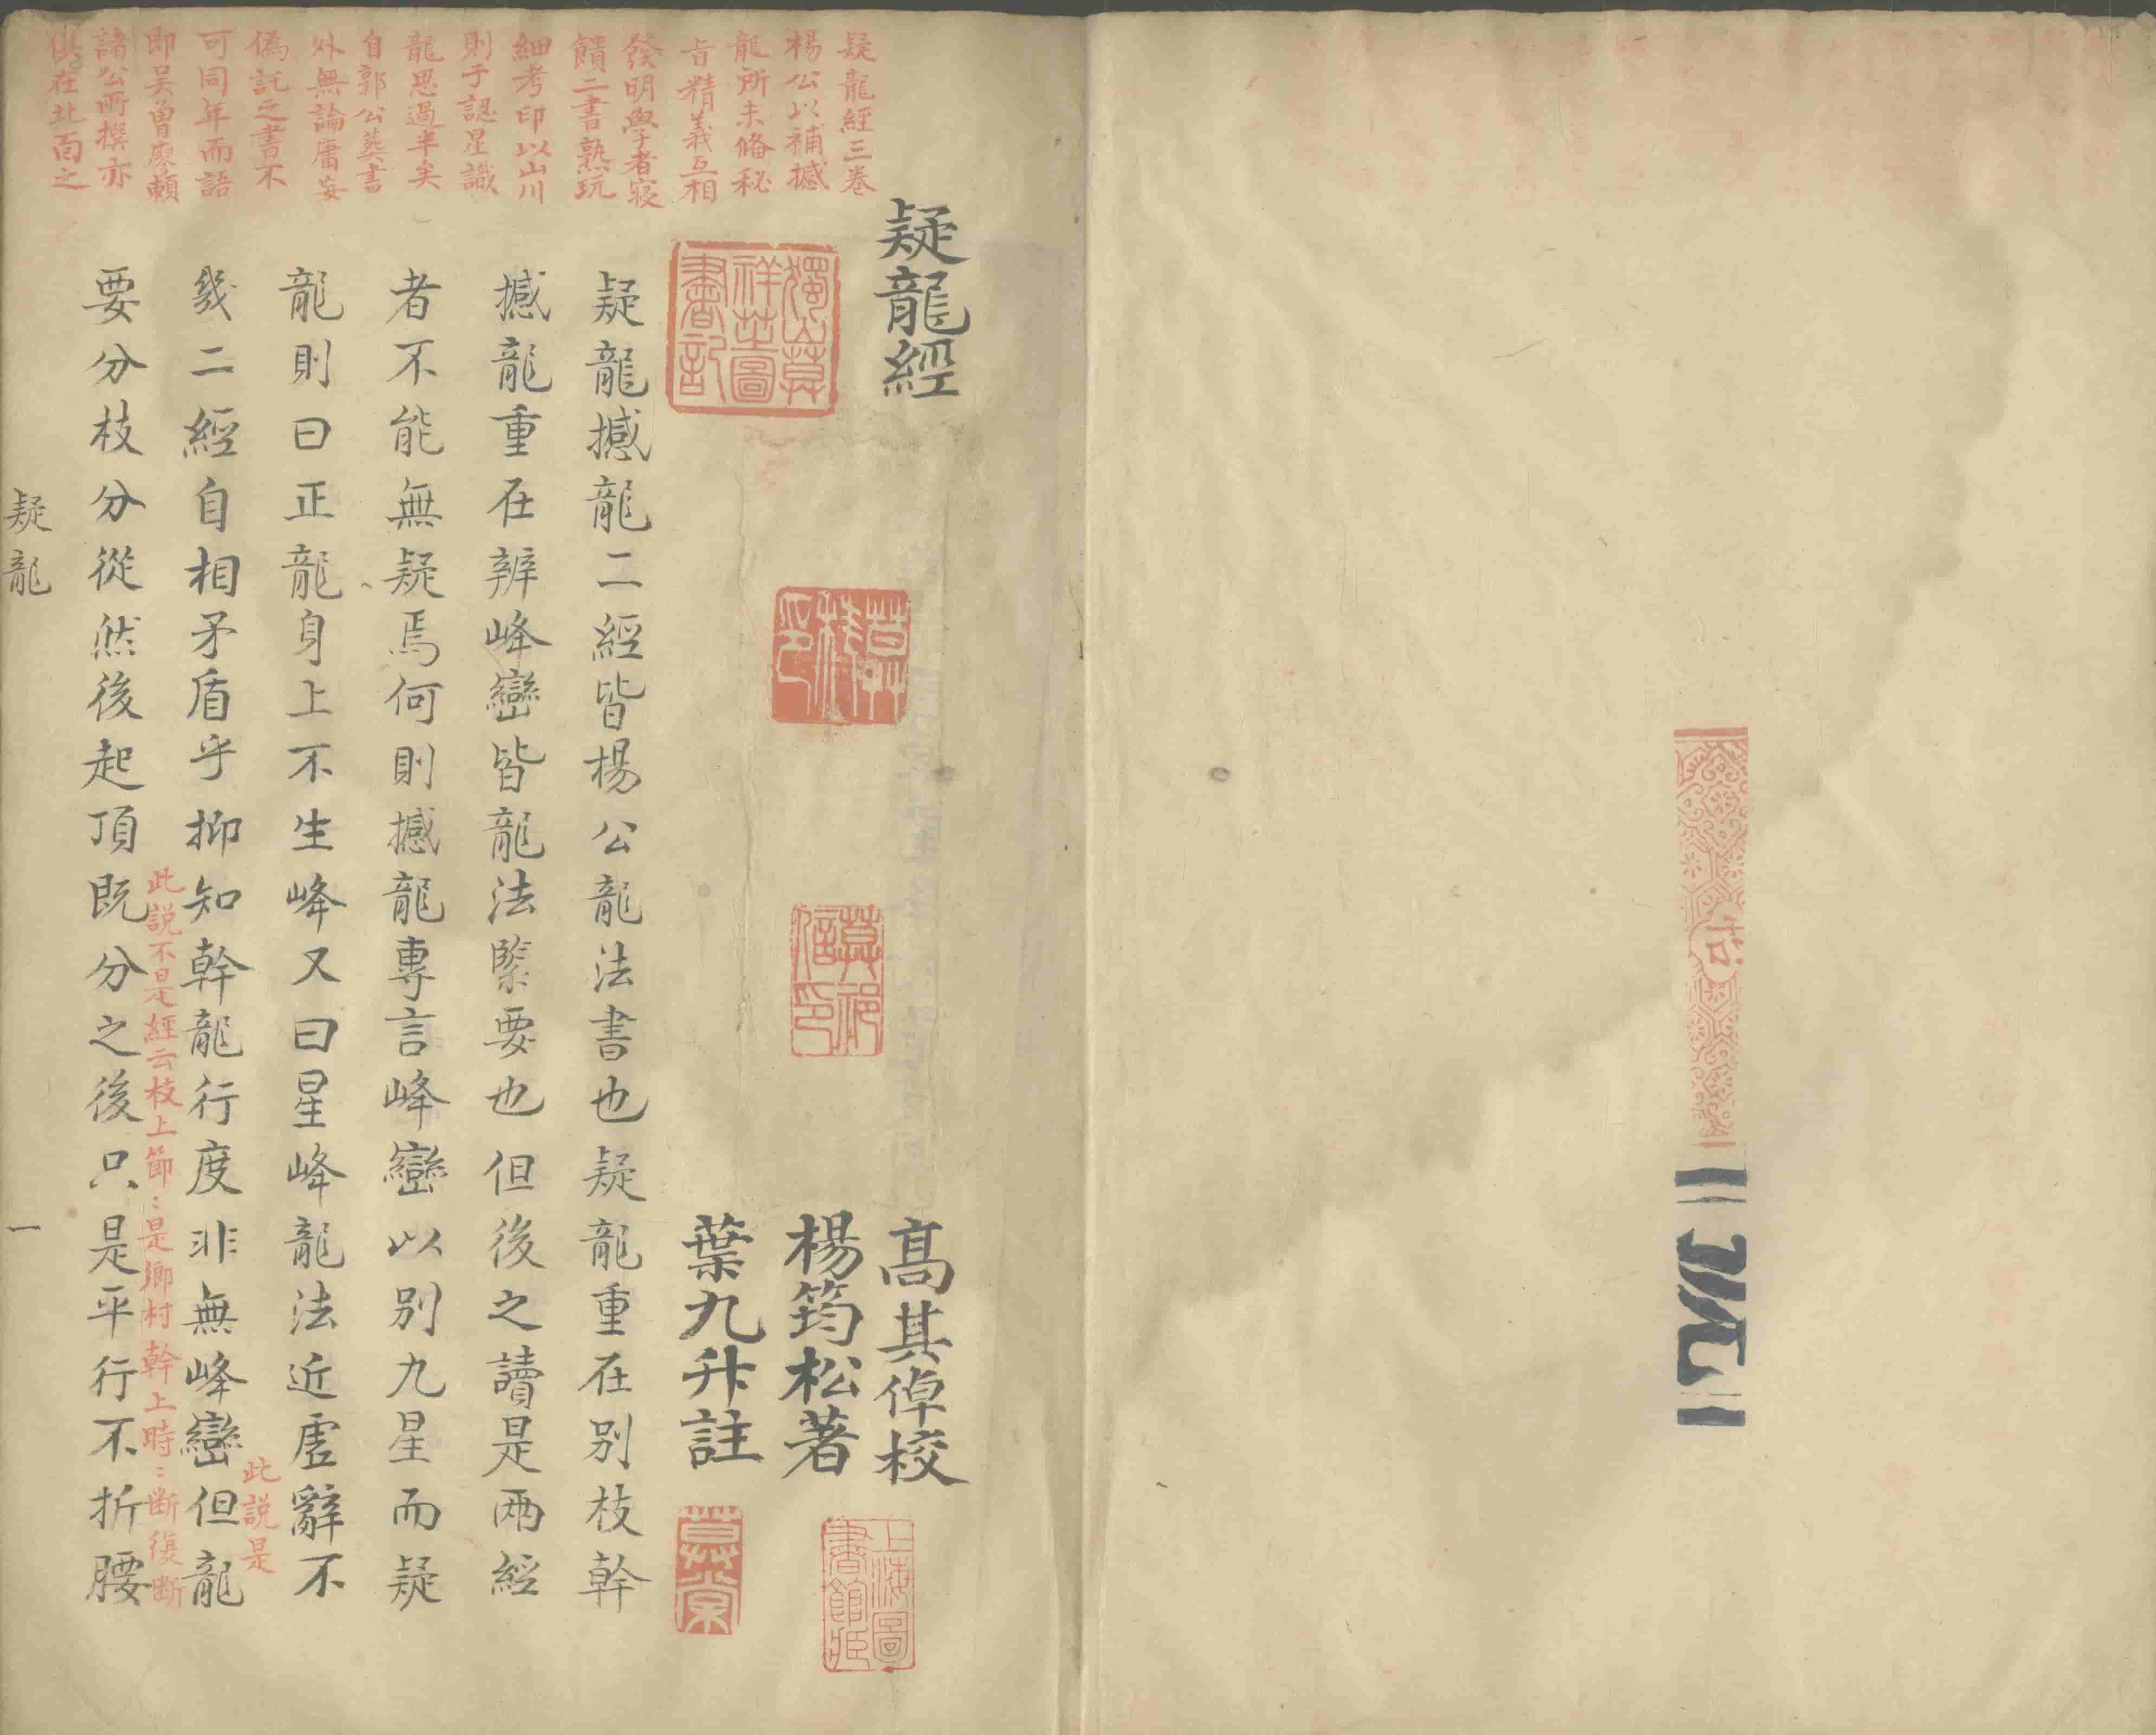 疑龍經
高其倬校
楊筠松著
葉九升註
疑龍經三卷
楊公以補撼
龍所未備秘
旨精義互相
發明學者寢
饋二書熟玩
細考印以山川
則于認星識
龍思過半矣
自郭公葬書
外無論庸妄
偽託之書不
可同年而語
即吴曾廖賴
諸公所撰亦
俱在北面之
疑龍撼龍二經皆楊公龍法書也疑龍重在別枝幹
撼龍重在辨峰巒皆龍法緊要也但後之讀是兩經
者不能無疑焉何則撼龍專言峰巒以別九星而疑
龍則曰正龍身上不生峰又曰星峰龍法近虛辭不
此説是
幾二經自相矛盾乎抑知幹龍行度非無峰巒但龍
此説不是經云枝上節〻是鄉村幹上時〻断復断
要分枝分從然後起頂既分之後只是平行不折腰
疑龍
一
上海圖書館藏